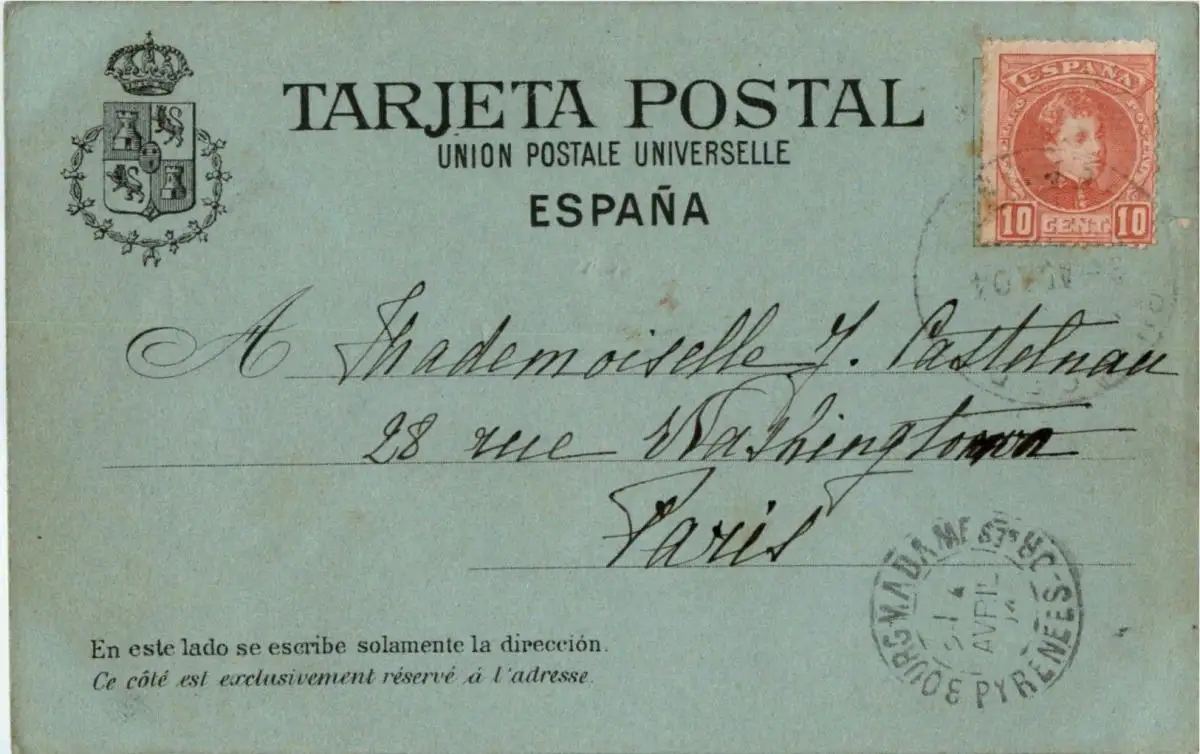 TARJETA POSTAL
UNION POSTALE UNIVERSELLE
ESPAÑA
ESPAÑA
10 CENT. 10
04
A Mademoiselle J. Castelnau
28 rue Washington
Paris
BOURG-MADAME
AVRIL
PYRÉNÉES-OR.LES
En este lado se escribe solamente la dirección.
Ce côté est exclusivement réservé á l'adresse.